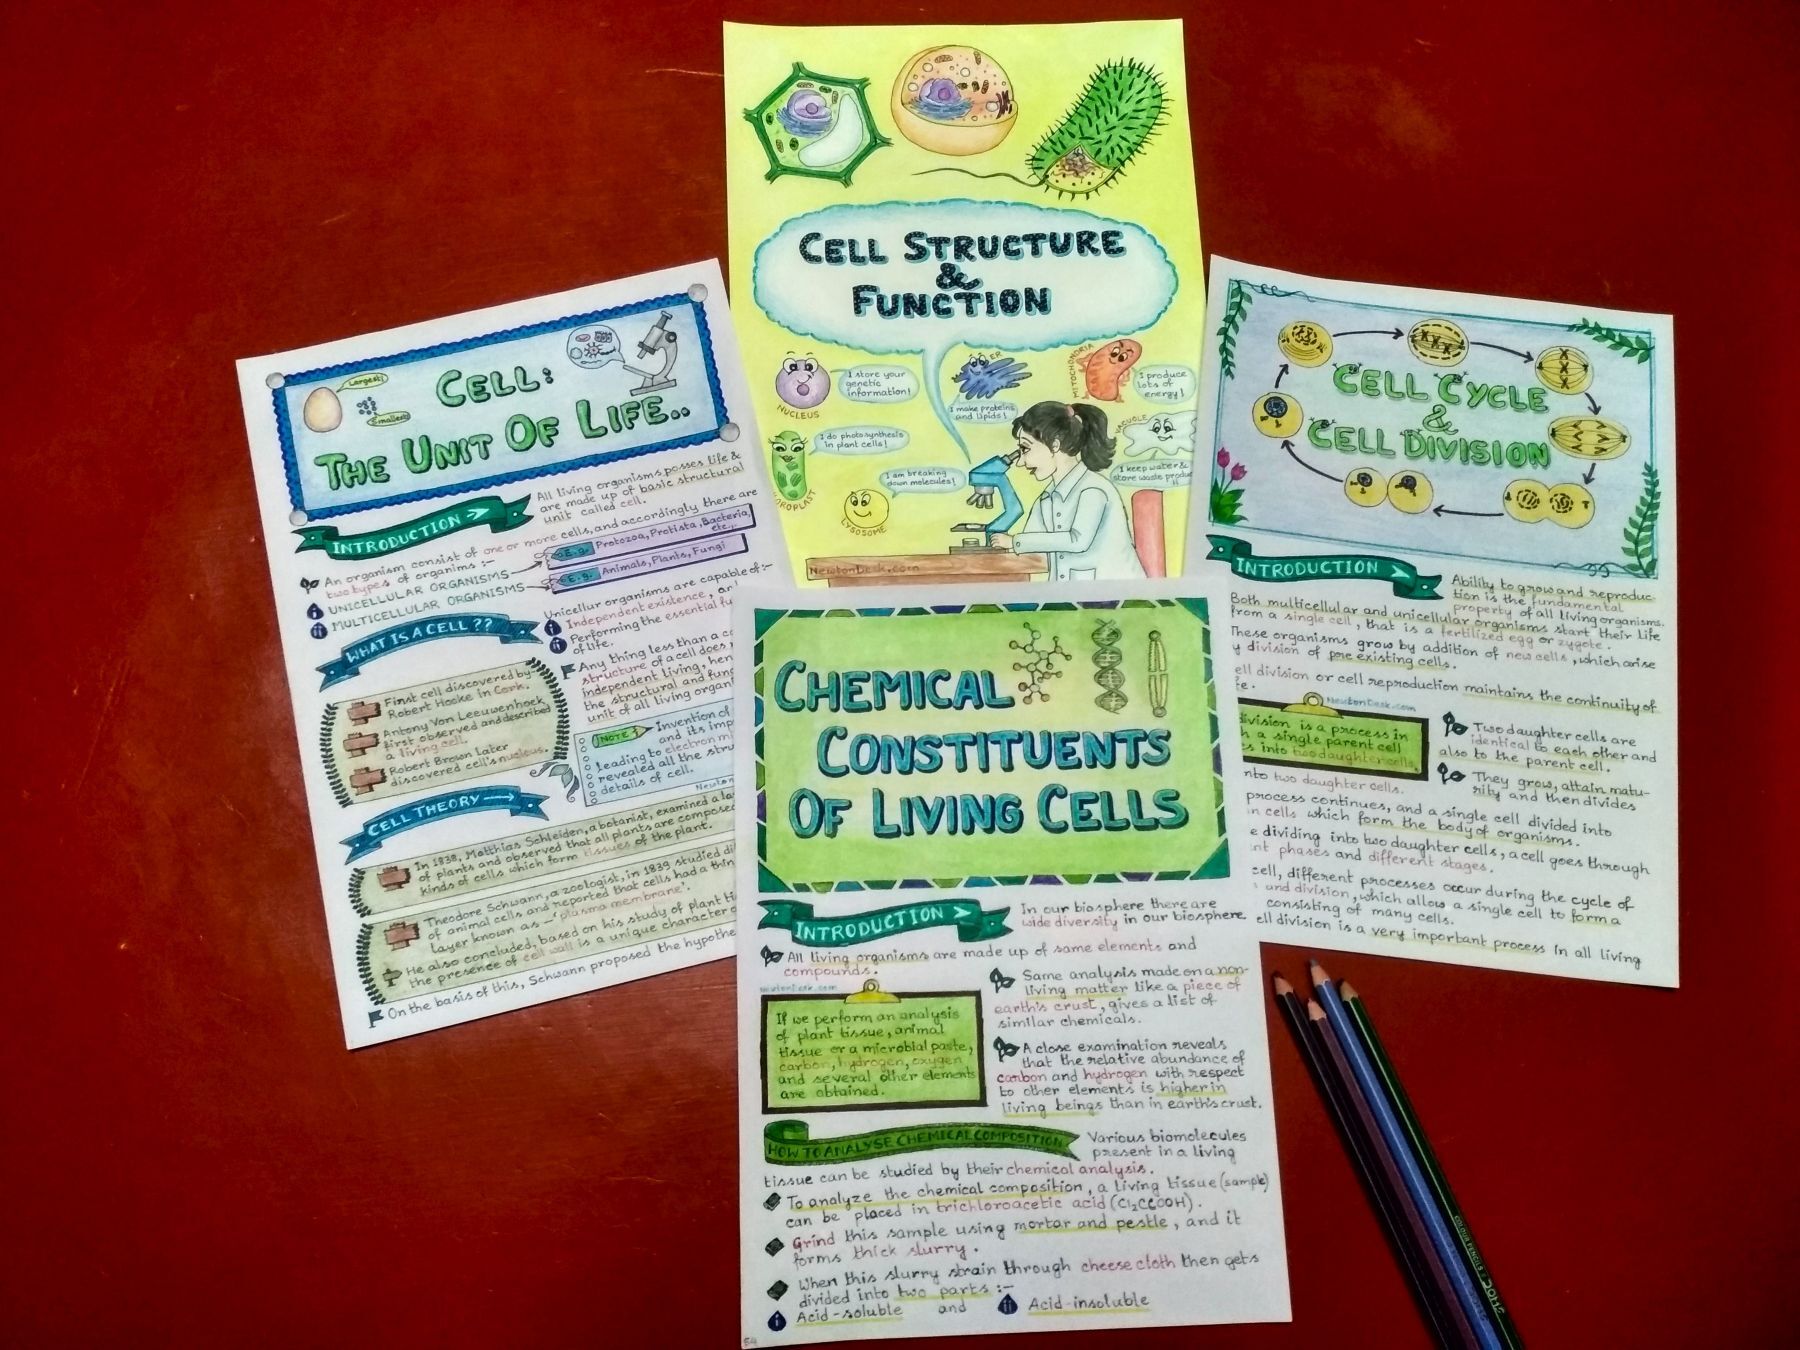 CELL STRUCTURE
&
FUNCTION
NUCLEUS
I store your
genetic
information!
ER
I make proteins
and lipids!
MITOCHONDRIA
I produce
lots of
energy!
I do photosynthesis
in plant cells!
I am breaking
down molecules!
LYSOSOME
VACUOLE
I keep water &
store waste produc
NewtonDesk.com
Largest!
Smallest!
CELL:
THE UNIT OF LIFE..
INTRODUCTION
All living organisms posses life &
are made up of basic structural
unit called cell.
An organism consist of one or more cells, and accordingly there are
two types of organims :-
i UNICELLULAR ORGANISMS E.g. Protozoa, Protista, Bacteria, etc..
ii MULTICELLULAR ORGANISMS E.g. Animals, Plants, Fungi
WHAT IS A CELL ??
Unicellur organisms are capable of :-
i Independent existence, an
ii Performing the essential fu
of life.
Any thing less than a co
structure of a cell does
independent living, hen
the structural and func
unit of all living organi
First cell discovered by
Robert Hooke in Cork.
Antony Von Leeuwenhoek
first observed and described
a living cell.
Robert Brown later
discovered cell's nucleous.
NOTE
Invention of
and its imp
leading to electron mi
revealed all the stru
details of cell.
Newton
CELL THEORY
In 1838, Matthias Schleiden, a botanist, examined a la
of plants and observed that all plants are composed
kinds of cells which form tissues of the plant.
Theodore Schwann, a zoologist, in 1839 studied di
of animal cells and reported that cells had a thin
layer known as 'plasma membrane'.
He also concluded, based on his study of plant ti
the presence of cell wall is a unique character o
On the basis of this, Schwann proposed the hypothe
CELL CYCLE
&
CELL DIVISION
INTRODUCTION
Ability to grow and reproduc-
tion is the fundamental
property of all living organisms.
Both multicellular and unicellular organisms start their life
from a single cell, that is a fertilized egg or zygote.
These organisms grow by addition of new cells, which arise
y division of pre existing cells.
ell division or cell reproduction maintains the continuity of
fe.
NewtonDesk.com
division is a process in
h a single parent cell
es into two daughter cells.
Two daughter cells are
identical to each other and
also to the parent cell.
They grow, attain matu-
rity and then divides
nto two daughter cells.
process continues, and a single cell divided into
n cells which form the body of organisms.
e dividing into two daughter cells, a cell goes through
nt phases and different stages.
cell, different processes occur during the cycle of
and division, which allow a single cell to form a
consisting of many cells.
ell division is a very important process in all living
CHEMICAL
CONSTITUENTS
OF LIVING CELLS
INTRODUCTION
In our biosphere there are
wide diversity in our biosphere.
All living organisms are made up of same elements and
compounds.
newtondesk.com
If we perform an analysis
of plant tissue, animal
tissue or a microbial paste,
carbon, hydrogen, oxygen
and several other elements
are obtained.
Same analysis made on a non-
living matter like a piece of
earth's crust, gives a list of
similar chemicals.
A close examination reveals
that the relative abundance of
carbon and hydrogen with respect
to other elements is higher in
living beings than in earth's crust.
HOW TO ANALYSE CHEMICAL COMPOSITION
Various biomolecules
present in a living
tissue can be studied by their chemical analysis.
To analyze the chemical composition, a living tissue (sample)
can be placed in trichloroacetic acid (Cl₂CCOOH).
Grind this sample using mortar and pestle, and it
forms thick slurry.
When this slurry strain through cheese cloth then gets
divided into two parts :-
i Acid-soluble and ii Acid-insoluble
COLOUR PENCILS
DOMS